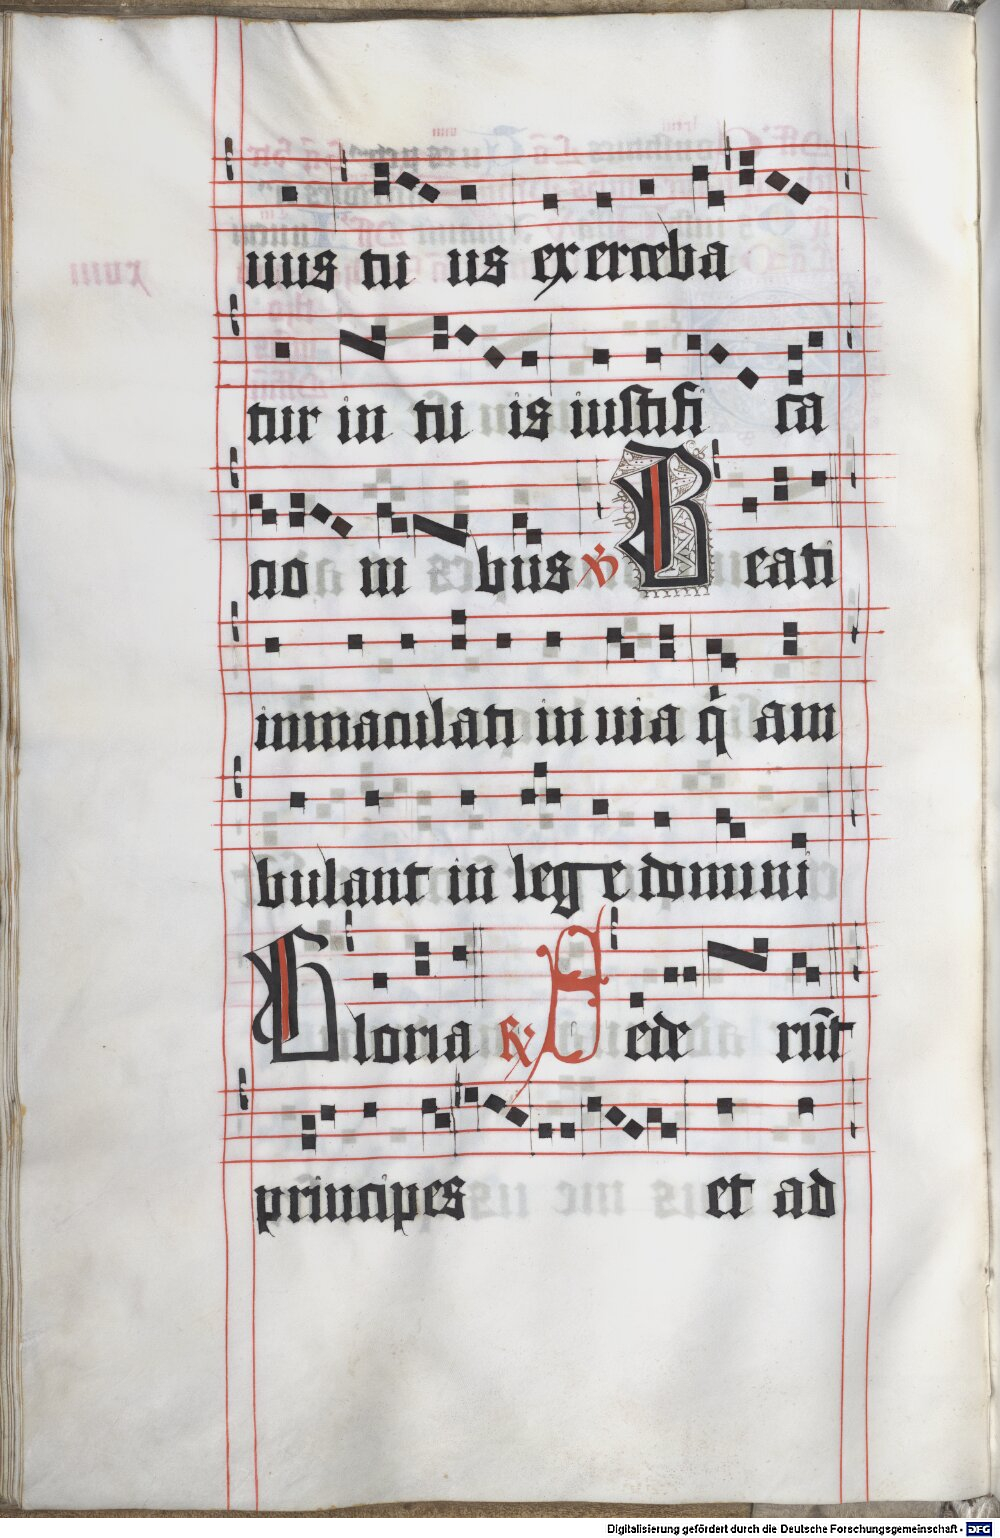 uus tu us exerceba
tur in tu is iustifi ca
cio ni bus ℣ Beati
immaculati in uia q̄ am
bulant in lege domini
Gloria ℟ Sede rūt
principes et ad
Digitalisierung gefördert durch die Deutsche Forschungsgemeinschaft - DFG